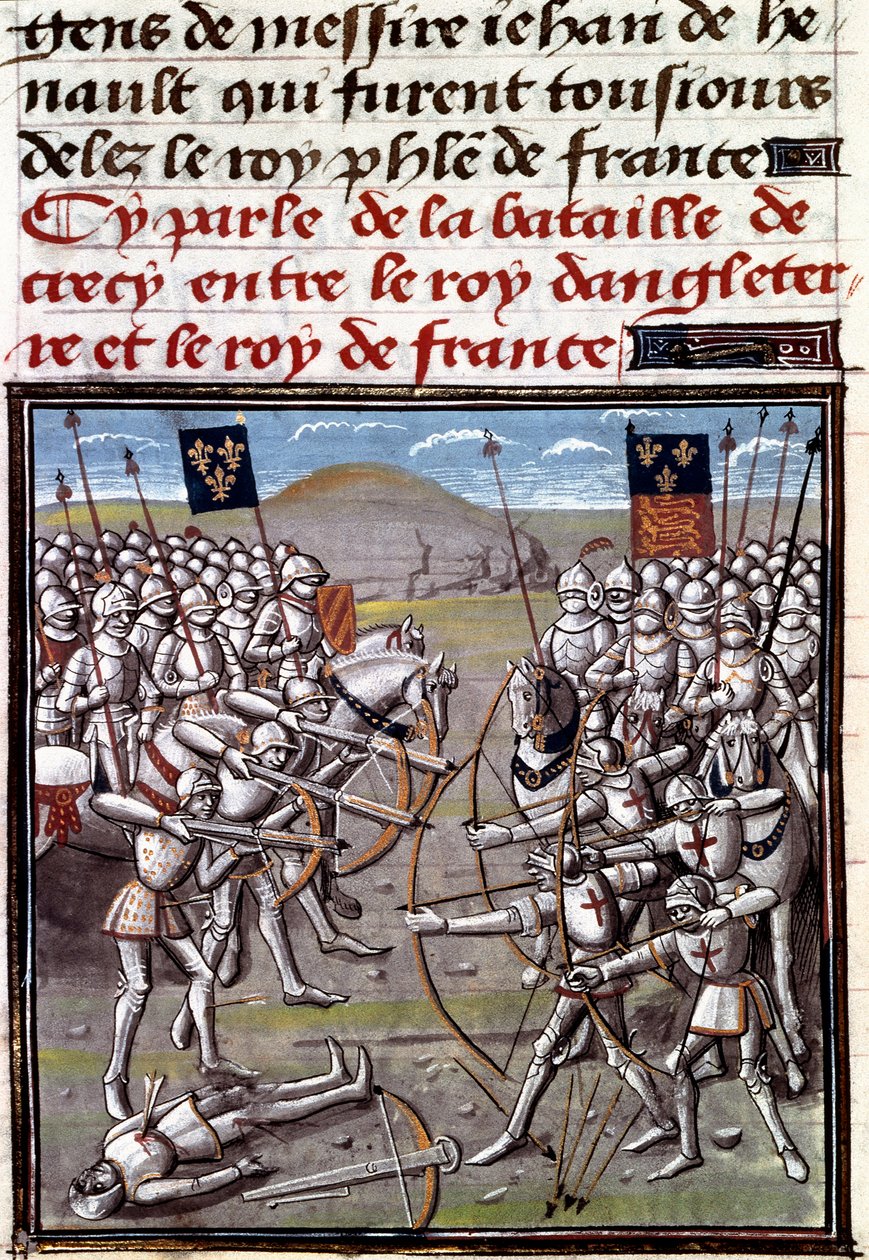 gens de messire iehan de he
nault qui furent tousiours
delez le roy phlē de france
Cy parle de la bataille de
crecy entre le roy dangleter
re et le roy de france